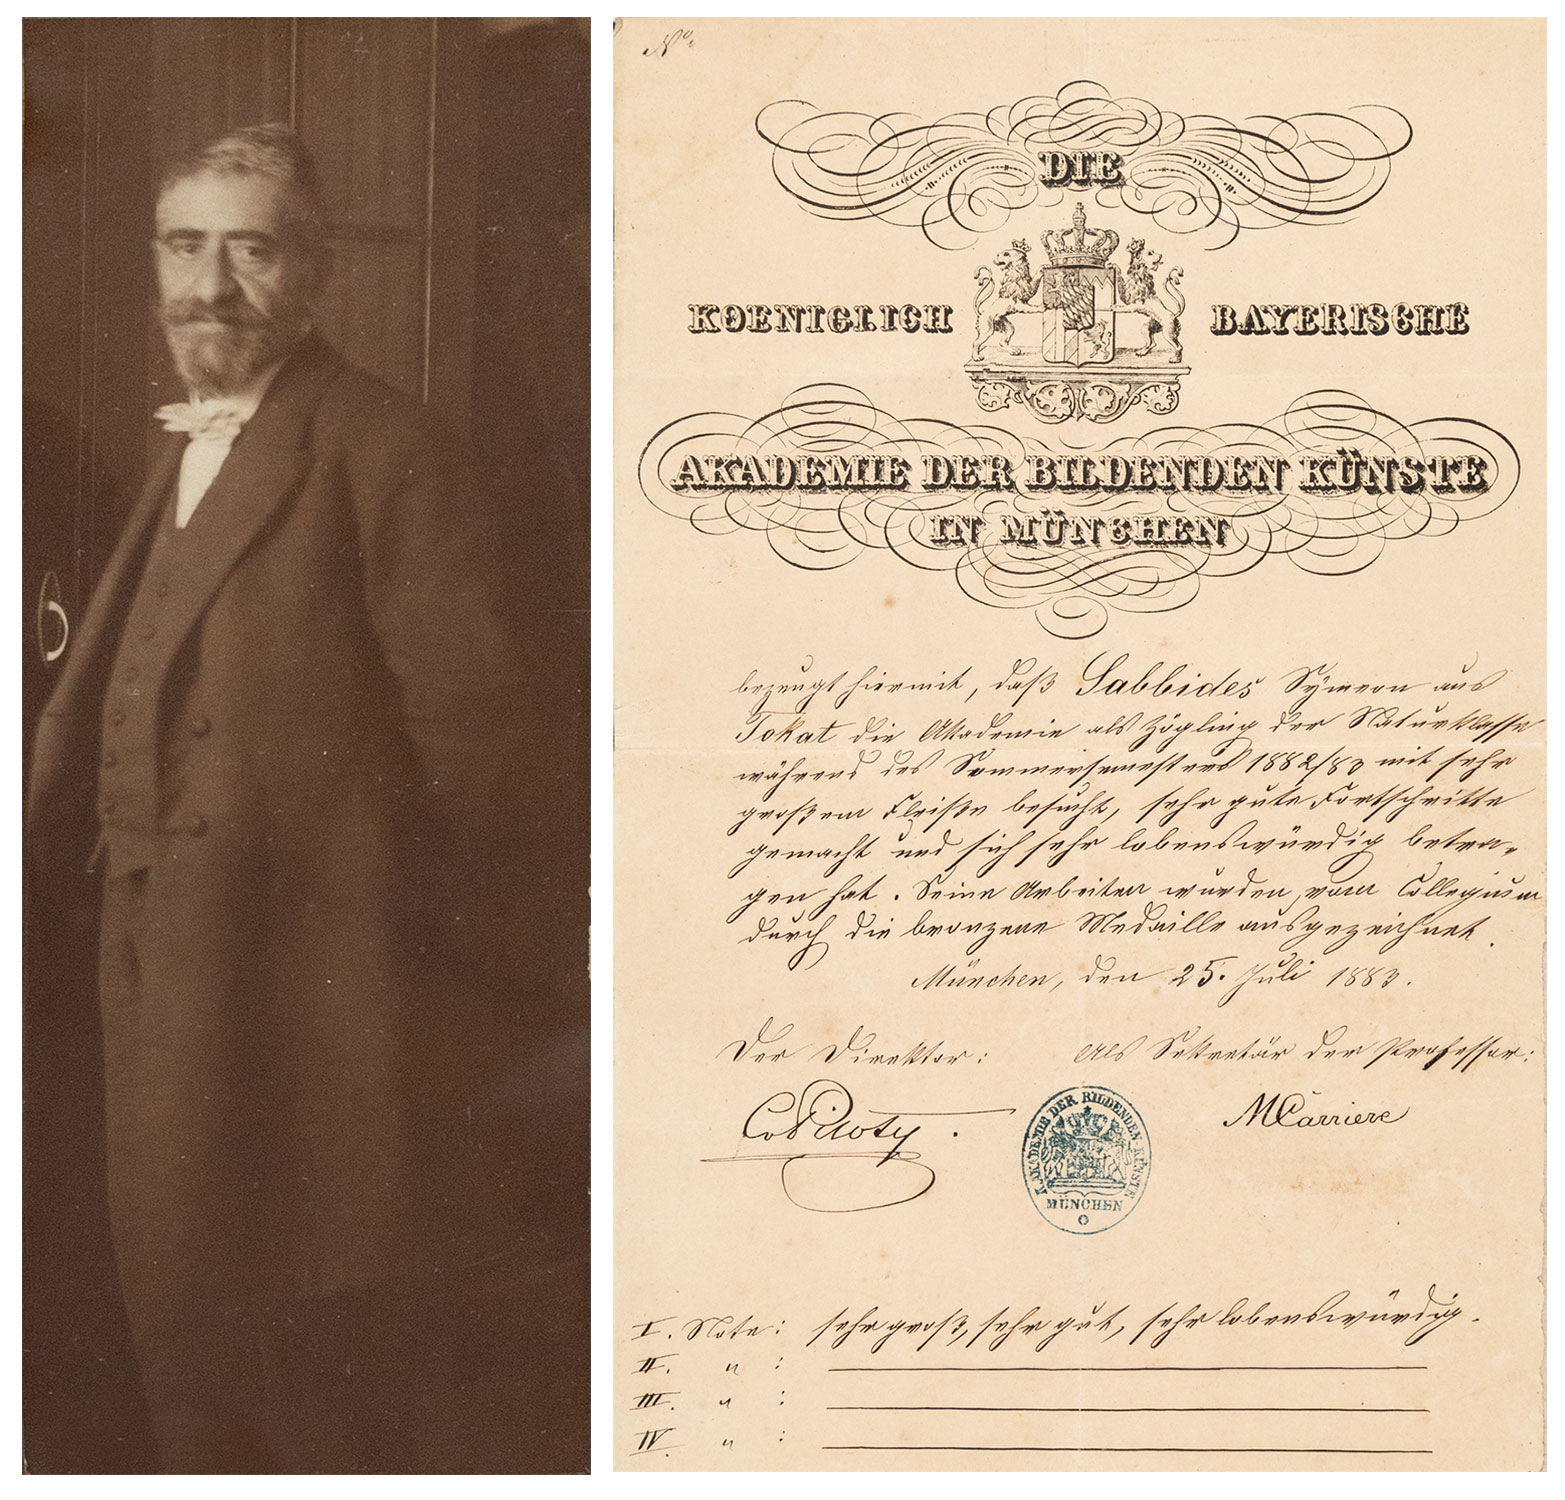 No.
DIE
KOENIGLICH BAYERISCHE
AKADEMIE DER BILDENDEN KÜNSTE
IN MÜNCHEN
bezeugt hiermit, daß Sabbides Symeon aus
Tokat die Akademie als Zögling der Naturklasse
während des Sommersemesters 1882/83 mit sehr
großem Fleiße besucht, sehr gute Fortschritte
gemacht und sich sehr lobenswürdig betra-
gen hat. Seine Arbeiten wurden vom Collegium
durch die bronzene Medaille ausgezeichnet.
München, den 25. Juli 1883.
Der Direktor: Als Sekretär der Professor:
C. v. Piloty. MCarriere
K. AKADEMIE DER BILDENDEN KÜNSTE
MÜNCHEN
I. Note: sehr groß, sehr gut, sehr lobenswürdig.
II. " :
III. " :
IV. " :